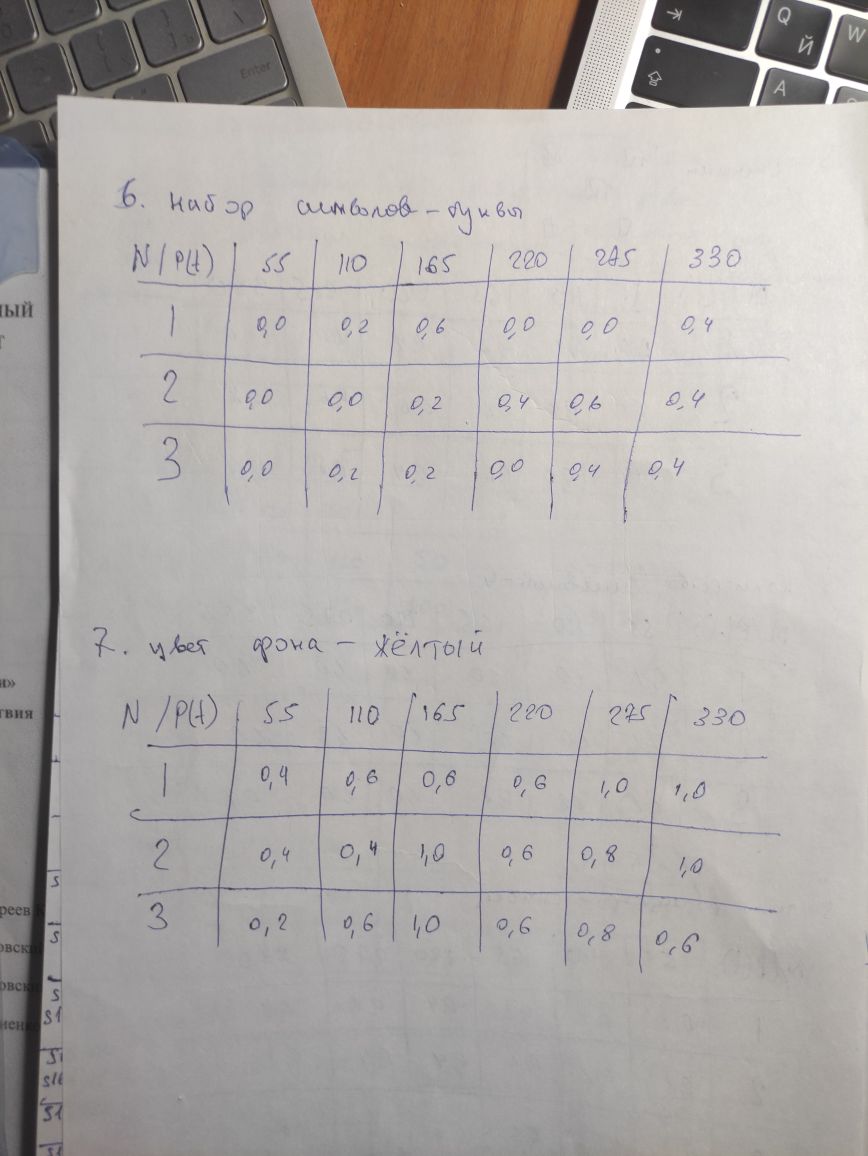 Enter
Q
Й
W
A
6. набор символов - буквы
N/P(t) 55 110 165 220 275 330
1 0,0 0,2 0,6 0,0 0,0 0,4
2 0,0 0,0 0,2 0,4 0,6 0,4
3 0,0 0,2 0,2 0,0 0,4 0,4
7. цвет фона - жёлтый
N/P(t) 55 110 165 220 275 330
1 0,4 0,6 0,6 0,6 1,0 1,0
2 0,4 0,4 1,0 0,6 0,8 1,0
3 0,2 0,6 1,0 0,6 0,8 0,6